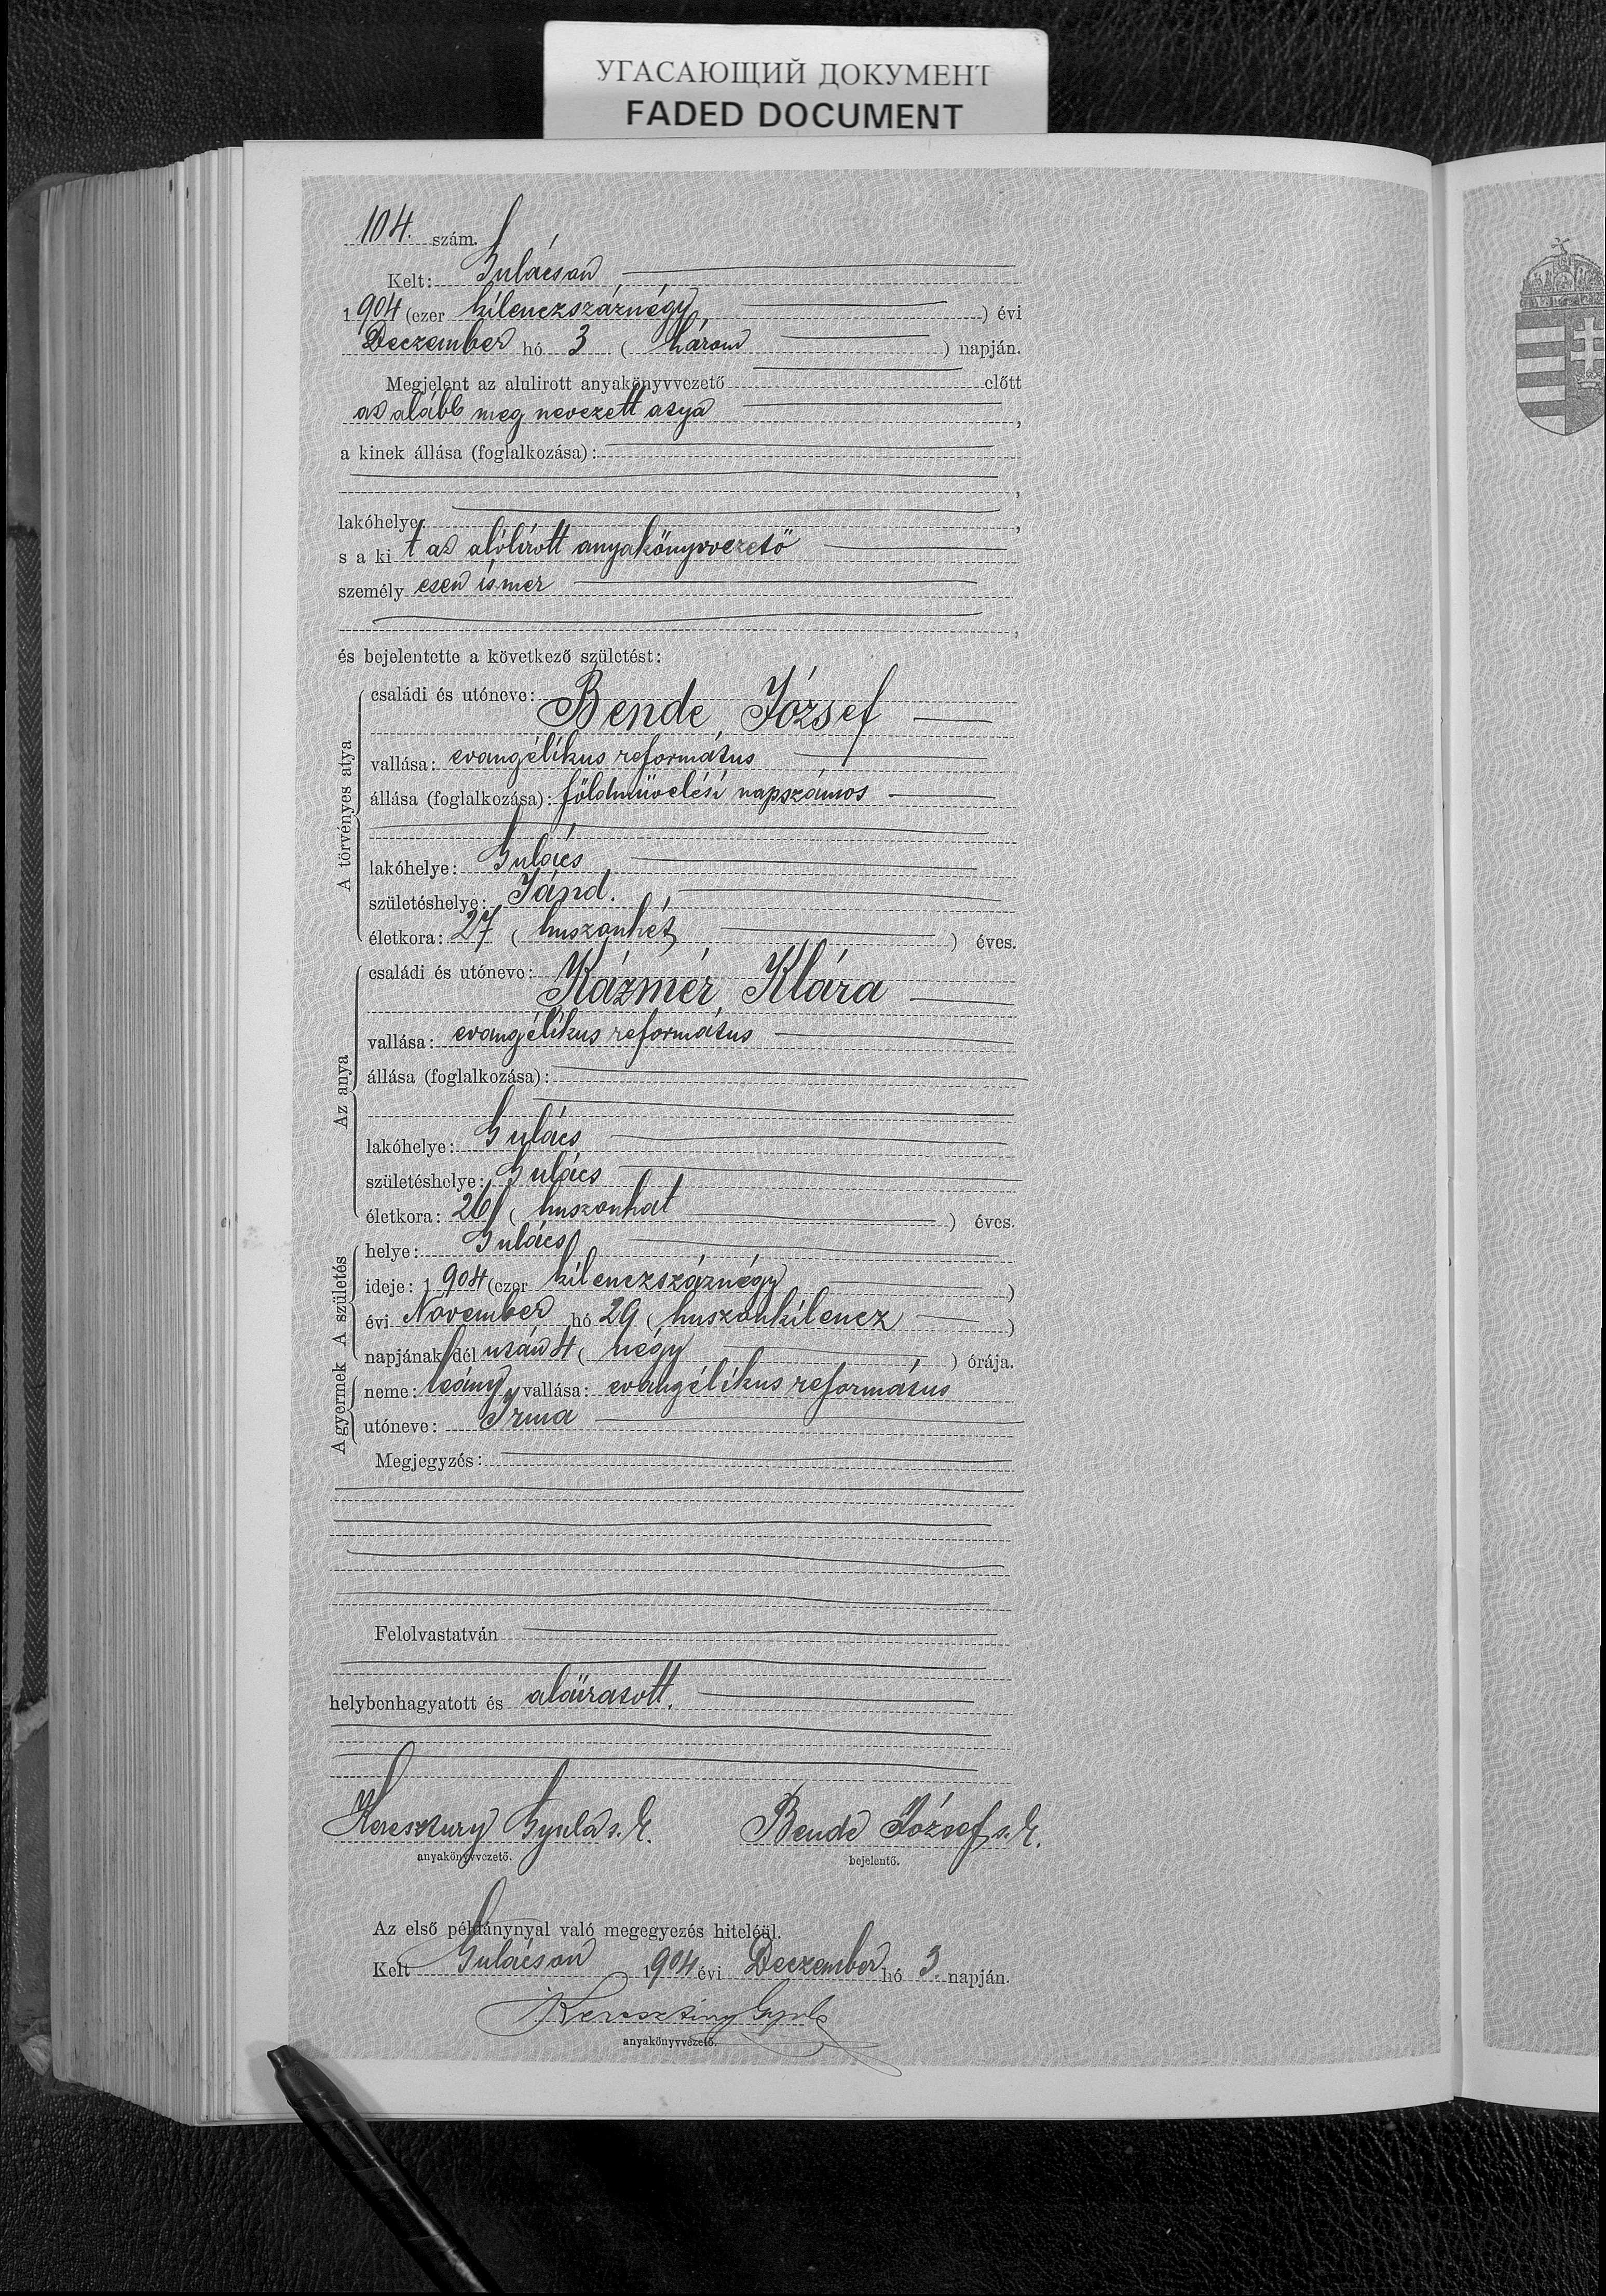 УГАСАЮЩИЙ ДОКУМЕНТ
FADED DOCUMENT
104. szám.
Kelt: Gulácson
1904 (ezer kilenczszáznégy) évi
Deczember hó 3 (három) napján.
Megjelent az alulirott anyakönyvvezető előtt
az alább meg nevezett atya,
a kinek állása (foglalkozása):
,
lakóhelye: ,
s a kit az alólirott anyakönyvvezető
személyesen ismer
,
és bejelentette a következő születést:
A törvényes atya
családi és utóneve: Bende József
vallása: evangélikus református
állása (foglalkozása): földmüvelési napszámos
lakóhelye: Gulács
születéshelye: Jánd.
életkora: 27 (huszonhét) éves.
Az anya
családi és utóneve: Kázmér Klára
vallása: evangélikus református
állása (foglalkozása):
lakóhelye: Gulács
születéshelye: Gulács
életkora: 26 (huszonhat) éves.
A gyermek A születés
helye: Gulács
ideje: 1904 (ezer kilenczszáznégy)
évi November hó 29 (huszonkilencz)
napjának dél után 4 (négy) órája.
neme: leány, vallása: evangélikus református
utóneve: Irma
Megjegyzés:
Felolvastatván
helybenhagyatott és aláiratott.
Keresztury Gyula s. k. Bende József s. k.
anyakönyvvezető. bejelentő.
Az első példánynyal való megegyezés hiteléül.
Kelt Gulácson 1904 évi Deczember hó 3. napján.
Keresztury Gyula
anyakönyvvezető.